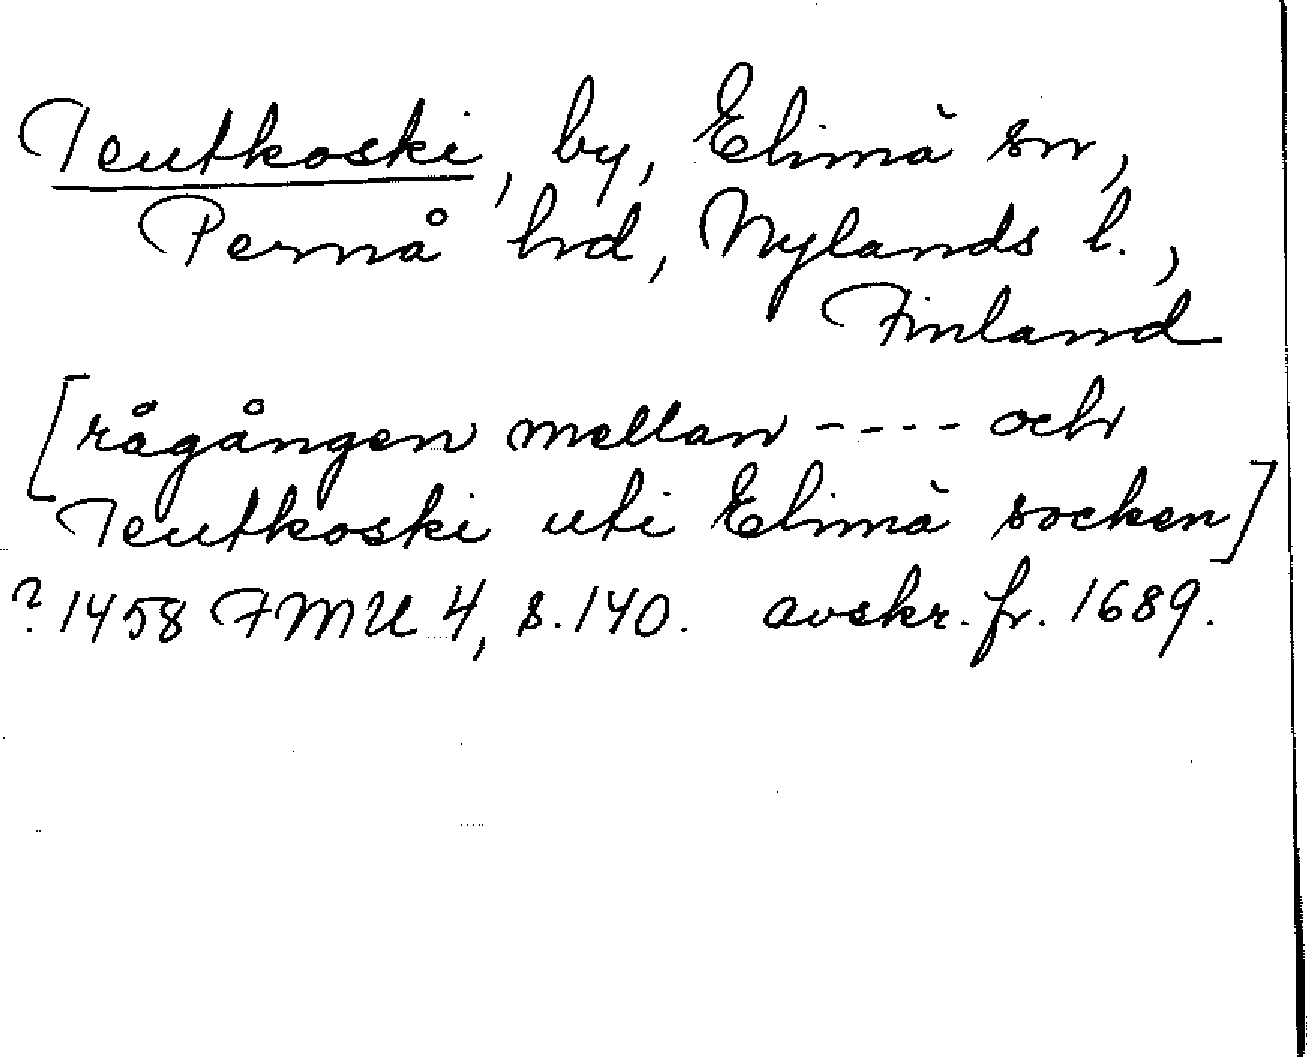 Teutkoski, by, Elimä sn,
Pernå hd, Nylands l.,
Finland
[rågången mellan ---- och
Teutkoski uti Elimä socken]
? 1458 FMU 4, s. 140. avskr. fr. 1689.